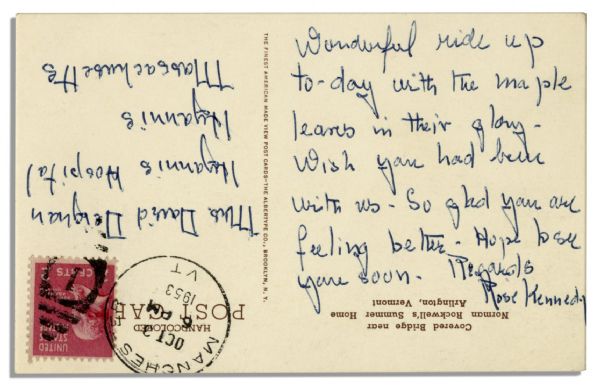 Wonderful ride up
to-day with the maple
leaves in their glory-
Wish you had been
with us - So glad you are
feeling better - Hope to see
you soon. Regards
Rose Kennedy
Mrs David Deignan
Hyannis Hospital
Hyannis
Massachusetts
THE FINEST AMERICAN MADE VIEW POST CARDS—THE ALBERTYPE CO., BROOKLYN, N. Y.
Covered Bridge near
Norman Rockwell's Summer Home
Arlington, Vermont
HANDCOLORED
POST CARD
MANCHES
OCT 2
AM
1953
VT
UNITED
STATES
CENTS